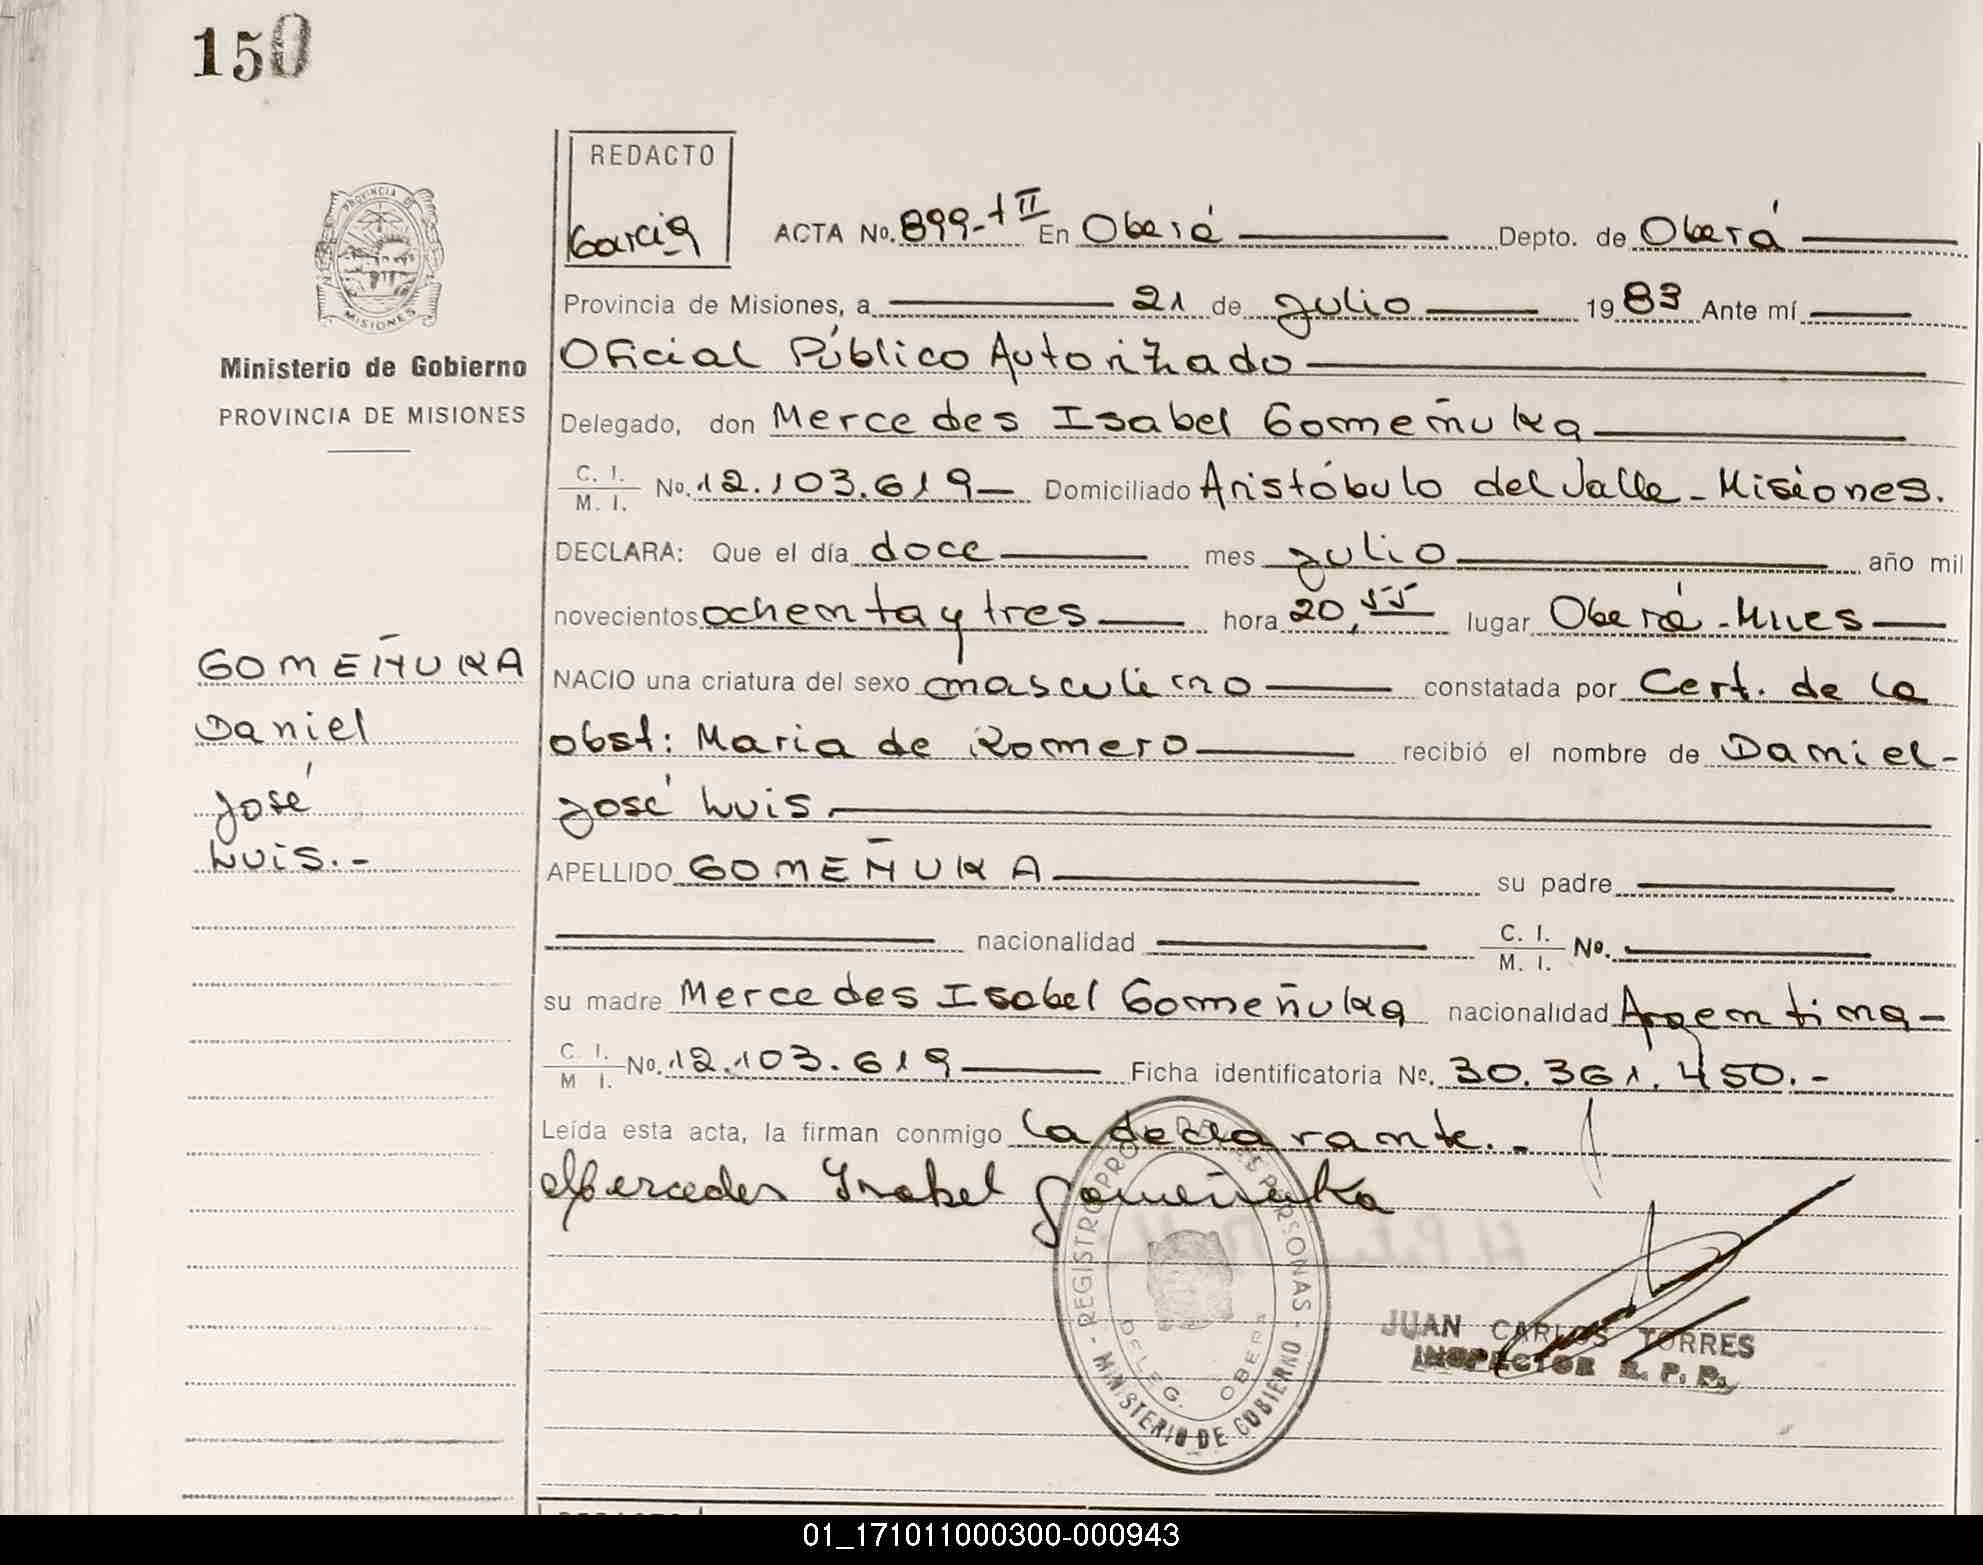 150
REDACTO
Garcia
PROVINCIA DE
MISIONES
Ministerio de Gobierno
PROVINCIA DE MISIONES
ACTA No. 899-tII En Oberá Depto. de Oberá
Provincia de Misiones, a 21 de julio 1983 Ante mí
Oficial Público Autorizado
Delegado, don Mercedes Isabel Gomeñuka
C. I. / M. I. No. 12.103.619 Domiciliado Aristóbulo del Valle - Misiones.
DECLARA: Que el día doce mes julio año mil
novecientos ochenta y tres hora 20,55 lugar Oberá - Mnes
GOMEÑUKA
Daniel
José
Luis.-
NACIO una criatura del sexo masculino constatada por Cert. de la
obst: Maria de Romero recibió el nombre de Daniel-
José Luis
APELLIDO GOMEÑUKA su padre
nacionalidad C. I. / M. I. No.
su madre Mercedes Isabel Gomeñuka nacionalidad Argentina-
C. I. / M I. No. 12.103.619 Ficha identificatoria No. 30.361.450.-
Leída esta acta, la firman conmigo la declarante.-
Mercedes Isabel Gomeñuka
REGISTRO PROV. DE LAS PERSONAS
DELEG. OBERA
MINISTERIO DE GOBIERNO
JUAN CARLOS TORRES
INSPECTOR R. P. P.
01_171011000300-000943